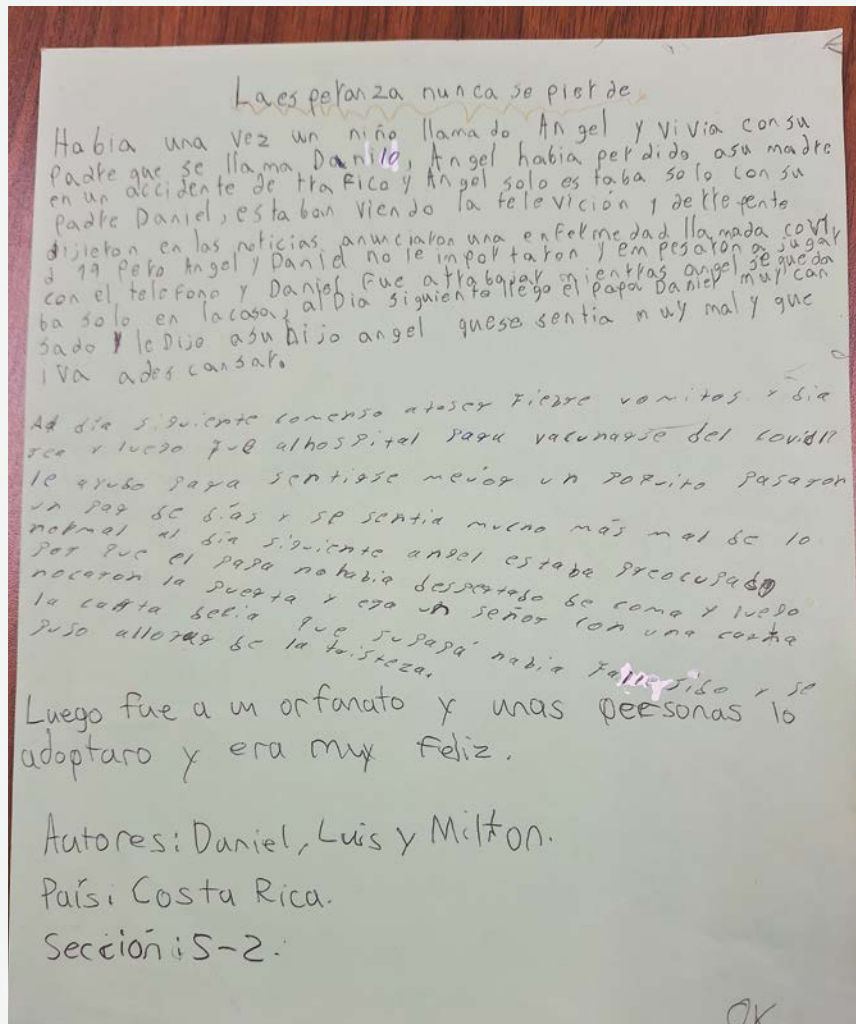 La esperanza nunca se pierde
Habia una vez un niño llamado Angel y vivia con su
padre que se llama Danilo, Angel habia perdido asu madre
en un accidente de trafico y Angel solo estaba solo con su
padre Daniel, estaban viendo la televición y derrepente
dijieron en las noticias anunciaron una enfermedad llamada covi
d 19 Pero Angel y Daniel no le importaron y empesaron a jugar
con el telefono y Daniel fue atrabajar mientras angel se queda
ba solo en lacasa, al Dia siguiente llego el papa Daniel muy can
sado y le Dijo asu hijo angel quese sentia muy mal y que
iva adescansar.
Al dia siguiente comenso atoser fiebre vomitos y dia
rea y luego fue alhospital para vacunarse del covid19
le ayudo para sentirse mejor un poquito pasaron
un par de días y se sentia mucho más mal de lo
normal al dia siguiente angel estaba preocupado
por que el papa nohabia despertado de coma y luego
tocaron la puerta y era un señor con una carta
la carta decia que supapá habia fallesido y se
puso allorar de la tristeza.
Luego fue a un orfanato y unas personas lo
adoptaro y era muy Feliz.
Autores: Daniel, Luis y Milton.
País: Costa Rica.
Sección: 5-2.
OK